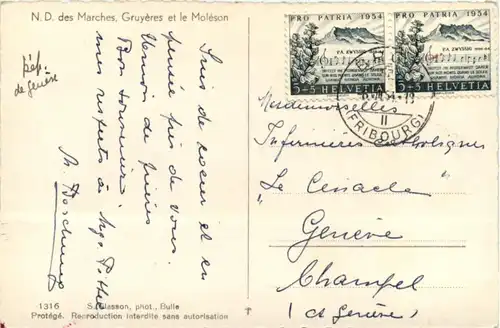 N. D. des Marches, Gruyères et le Moléson
dép.
de genève
Suis de coeur et en
pensée près de vous.
Union de prières
Bon souvenir
mes respects à Mgr
PRO PATRIA 1954
P.A. ZWYSSIG
5+5 HELVETIA
PRO PATRIA 1954
P.A. ZWYSSIG
5+5 HELVETIA
II
(FRIBOURG)
Mesdemoiselles
Infirmières catholiques
"Le Cénacle"
Genève
Champel
(ct Genève)
1316 S. Glasson, phot., Bulle
Protégé. Reproduction interdite sans autorisation